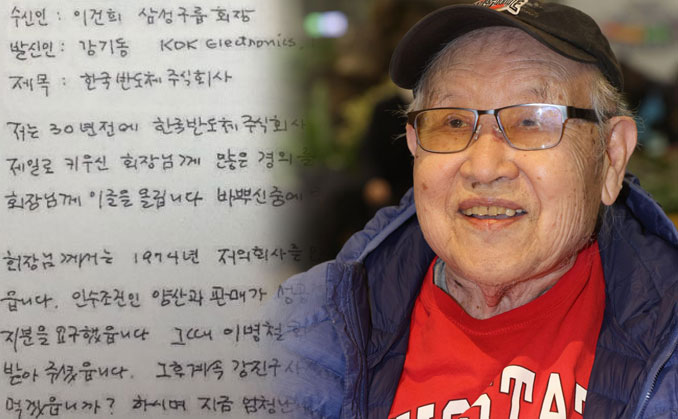 수신인 : 이건희 삼성구룹 회장
발신인 : 강기동 KDK Electronics,
제목 : 한국반도체 주식회사
저는 30년전에 한국반도체 주식회사
제일로 키우신 회장님께 많은 경의를
회장님께 이글을 올립니다 바쁘신중에
회장님께서는 1974년 저의회사를
읍니다. 인수조건인 양산과 판매가 성공
지분을 요구했읍니다 그때 이병철
받아 주셨읍니다. 그후계속 강진구사
먹겠읍니까? 하시며 지금 엄청난